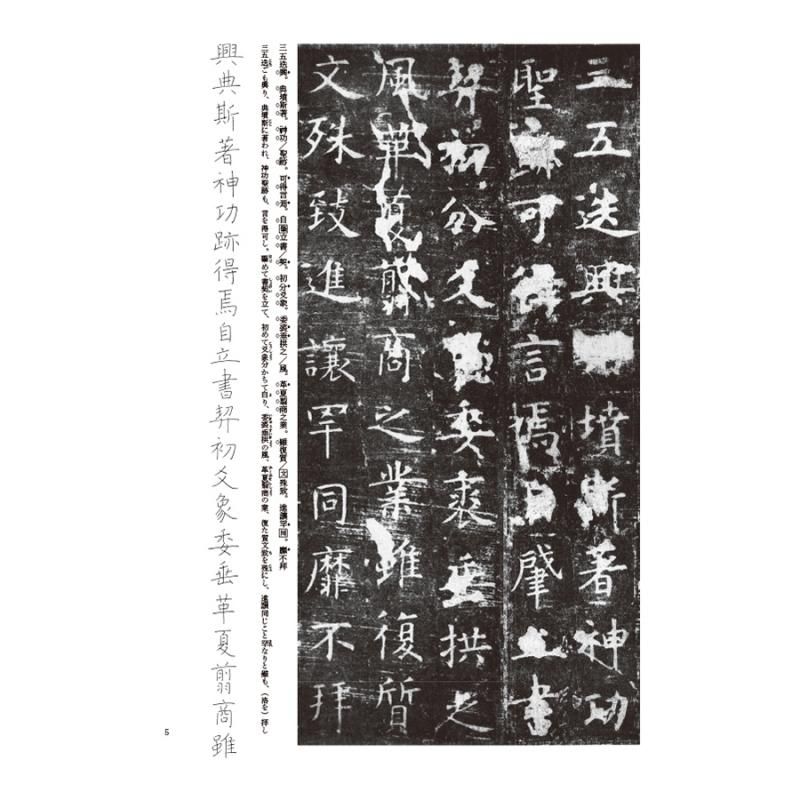 三五迭興 墳斯著神功
聖跡可得言焉自肇立書
契初分爻象委裘垂拱之
風革夏翦商之業雖復質
文殊致進讓罕同靡不拜
三五迭興。典墳斯著。神功/聖跡。可得言焉。自肇立書/契。初分爻象。委裘垂拱之/風。革夏翦商之業。雖復質/文殊致。進讓罕同。靡不拜
三五迭ごも興り、典墳斯に著われ、神功聖跡も、言を得可し。肇めて書契を立て、初めて爻象分かちて自り、委裘垂拱の風、革夏翦商の業、復た質文致を殊にし、進讓同じこと罕なりと雖も、(洛を)拝し
興典斯著神功跡得焉自立書契初爻象委垂革夏翦商雖
5